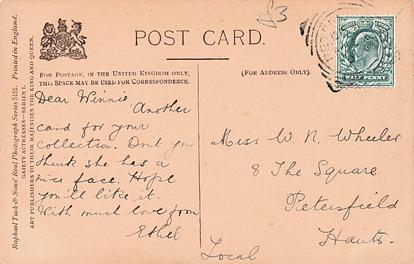 £3
POST CARD.
FOR POSTAGE, IN THE UNITED KINGDOM ONLY,
THIS SPACE MAY BE USED FOR CORRESPONDENCE.
(FOR ADDRESS ONLY.)
HALF PENNY
Raphael Tuck & Sons' Real Photograph Series 5151. Printed in England.
GAIETY ACTRESSES—SERIES I.
ART PUBLISHERS TO THEIR MAJESTIES THE KING AND QUEEN.
Dear Winnie
Another
card for your
collection. Don't you
think she has a
nice face. Hope
you'll like it.
With much love from
Ethel
Miss W. N. Wheeler
8 The Square
Petersfield
Hants.
Local